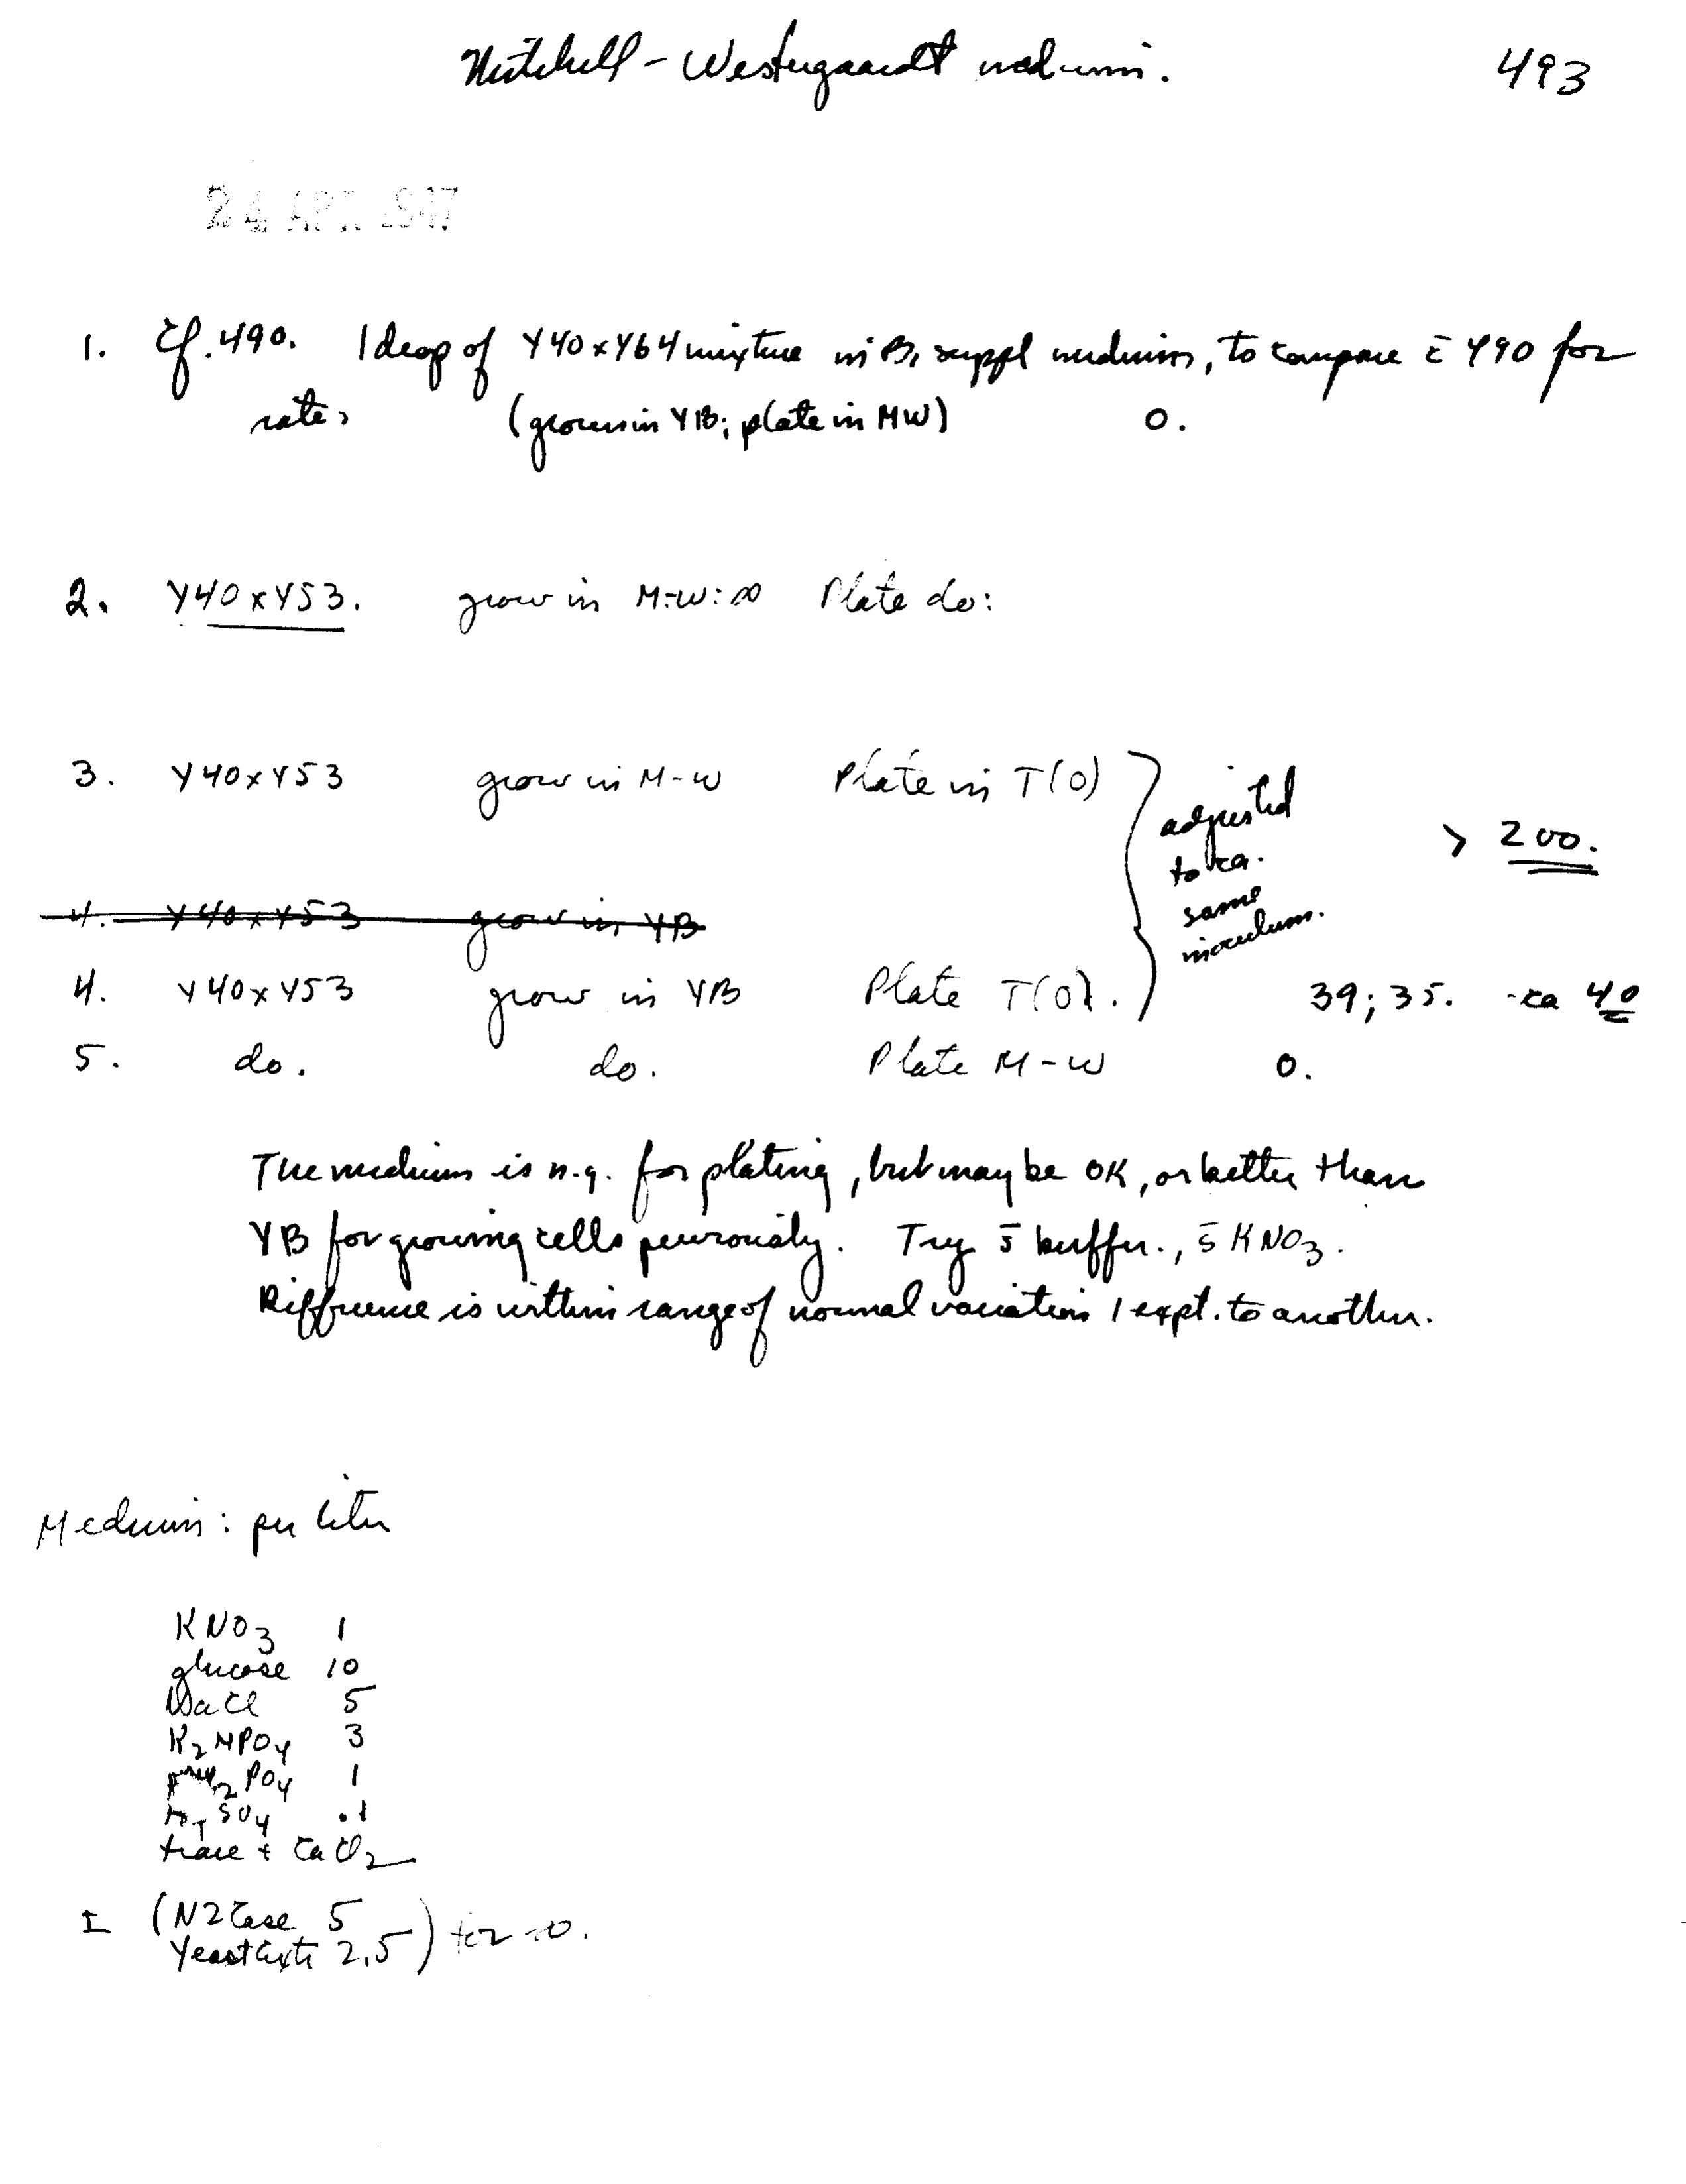 Mitchell - Westergaardt medium. 493
24 APR 1947
1. Cf. 490. 1 drop of Y40 x Y64 mixture in B1 suppl medium, to compare c̄ 490 for
rate. (grown in YB; plate in MW) 0.
2. Y40 x Y53. grow in M-W: ∞ Plate do:
3. Y40 x Y53 grow in M-W Plate in T(0)
adjusted
to ca.
same
inoculum.
> 200.
4. Y40 x Y53 grow in YB
4. Y40 x Y53 grow in YB Plate T(0). 39; 35. ca 40
5. do. do. Plate M-W 0.
The medium is n.g. for plating, but may be OK, or better than
YB for growing cells previously. Try s̄ buffer., s̄ KNO3.
Difference is within range of normal variation 1 expt. to another.
Medium: per liter
KNO3 1
glucose 10
NaCl 5
K2HPO4 3
PO4 1
SO4 .1
trace + CaCl2
I (N2Case 5
Yeast Ext 2.5) for ∞.